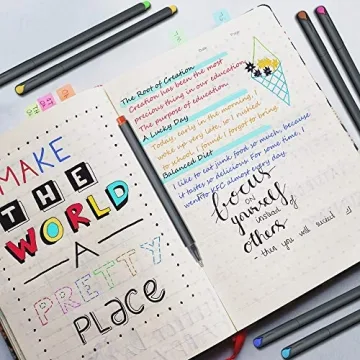 MAKE
THE
WORLD
A
PRETTY
PLACE
The Root of Creation
Creation has been the most
precious thing in our education
The purpose of education.
A Lucky Day
Today, early in the morning, I
woke up very late, so I rushed
to school, I found I forgot to bring.
Balanced Diet
I like to eat junk food so much, because
it tastes so delicious. For some time, I
went to KFC almost every day.
focus
on
yourself
instead of
others
then you will succeed :)